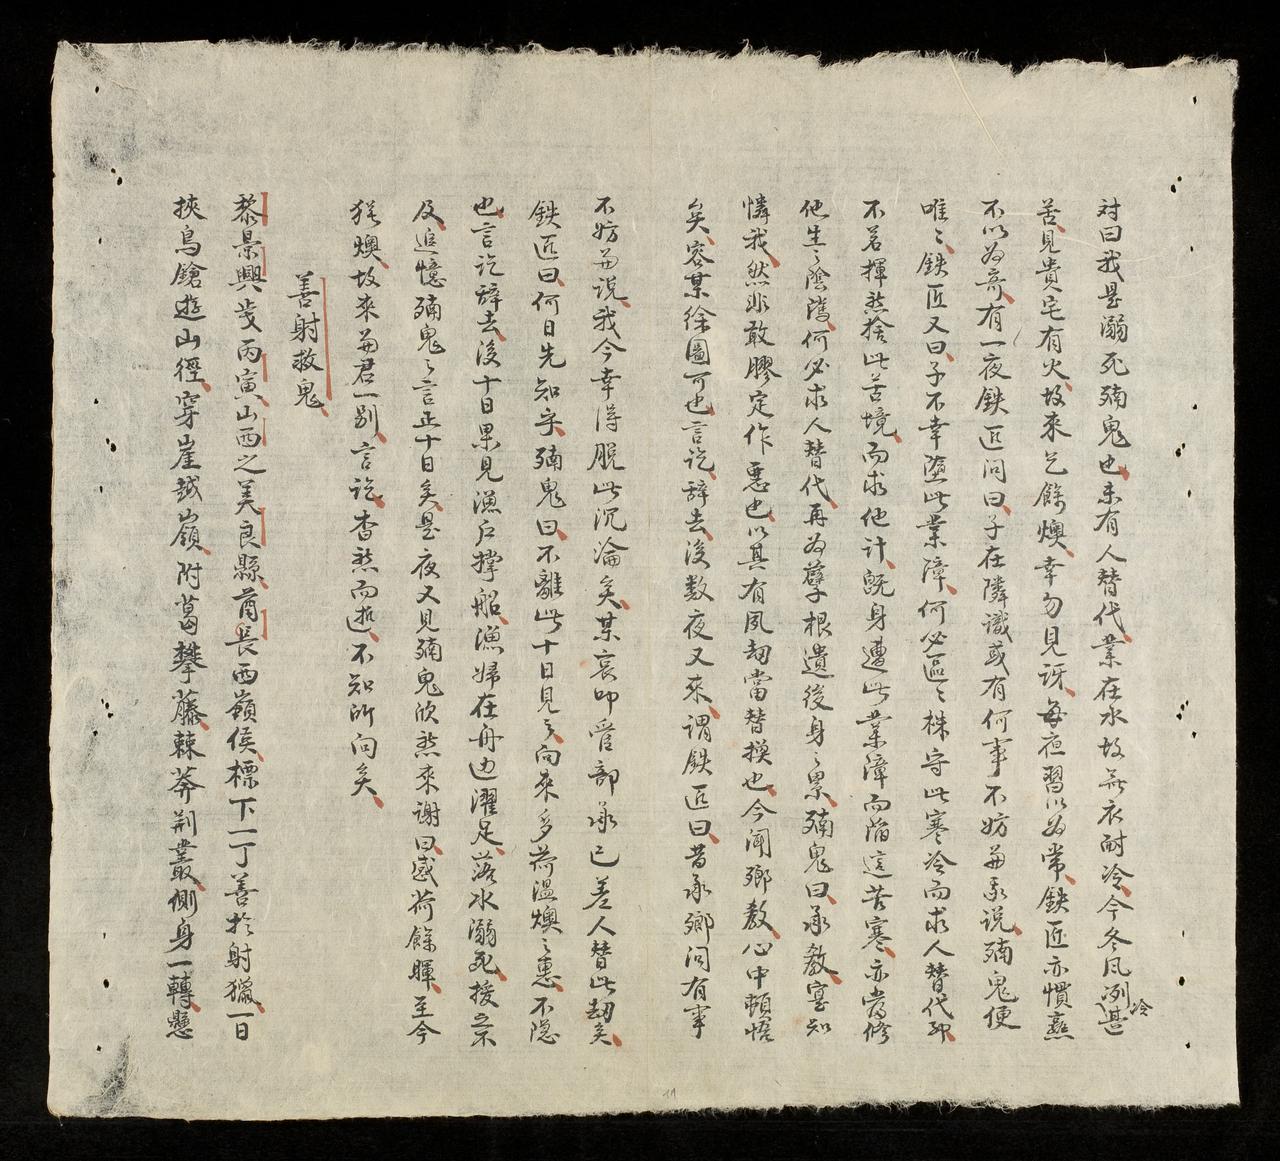 対曰我是溺死殑鬼也未有人替代業在水故無衣耐冷今冬风冽冷甚
苦見貴宅有火故來乞餘燠幸勿見訝每夜習以为常鉄匠亦慣熟
不以为奇有一夜鉄匠问曰子在隣識或有何事不妨為我説殑鬼便
唯〻鉄匠又曰子不幸墮此業障何必區〻株守此寒冷而求人替代耶
不若揮然捨此苦境而求他计既身遭此業障而陥這苦寒亦当修
他生之陰隲何必求人替代再为孽根遺後身之累殑鬼曰承教寔知
憐我然非敢膠定作悪也以其有夙刼當替換也今闻鄉教心中頓悟
矣容某徐圖可也言訖辞去後数夜又來谓鉄匠曰昔承鄉问有事
不妨為说我今幸得脱此沉淪矣某哀叩管部承已差人替此刼矣
鉄匠曰何日先知乎殑鬼曰不離此十日見之向來多荷温燠之惠不隐
也言訖辞去後十日果見漁户撑船漁婦在舟边濯足落水溺死援之不
及追憶殑鬼之言正十日矣是夜又見殑鬼欣然來谢曰感荷餘暉至今
犹燠故來為君一别言訖杳然而逝不知所向矣
善射救鬼
黎景興戔丙寅山西之美良縣酋長西嶺侯標下一丁善於射獵一日
挾鳥鎗遊山徑穿崖越嶺附葛攀藤棘莽荆叢側身一轉懸